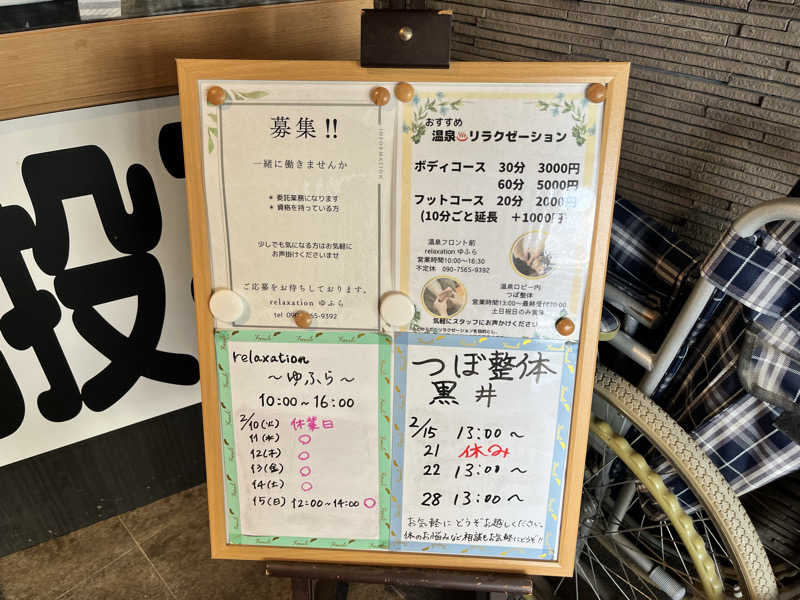 投
募集!!
INFORMATION
一緒に働きませんか
＊委託業務になります
＊資格を持っている方
少しでも気になる方はお気軽に
お声掛けくださいませ
ご応募をお待ちしております。
relaxation ゆふら
tel 090-7565-9392
おすすめ
温泉♨リラクゼーション
ボディコース 30分 3000円
60分 5000円
フットコース 20分 2000円
(10分ごと延長 +1000円
温泉フロント前
relaxation ゆふら
営業時間10:00〜16:30
不定休 090-7565-9392
温泉ロビー内
つぼ整体
営業時間13:00〜最終受付20:00
土日祝日のみ営業
気軽にスタッフにお声かけください
relaxation
〜ゆふら〜
10:00〜16:00
2/10(火) 休業日
11(水) ○
12(木) ○
13(金) ○
14(土) ○
15(日) 12:00〜14:00 ○
つぼ整体
黒井
2/15 13:00〜
21 休み
22 13:00〜
28 13:00〜
お気軽にどうぞお越しください。
体のお悩みなど相談もお気軽にどうぞ!!